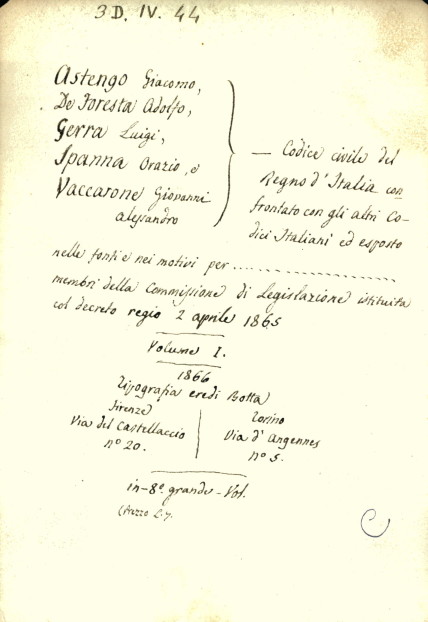 3 D. IV. 44
Astengo Giacomo,
De Foresta Adolfo,
Gerra Luigi,
Spanna Orazio, e
Vaccarone Giovanni
Alessandro
— Codice civile del
Regno d'Italia con
frontato con gli altri Co-
dici Italiani ed esposto
nelle fonti e nei motivi per ..................
membri della Commissione di Legislazione istituita
col decreto regio 2 aprile 1865
Volume I.
1866
Tipografia eredi Botta
Firenze
Via del Castellaccio
nº 20.
Torino
Via d'Angennes
nº 5.
in-8º grande - Vol.
(Prezzo L. 7.
C